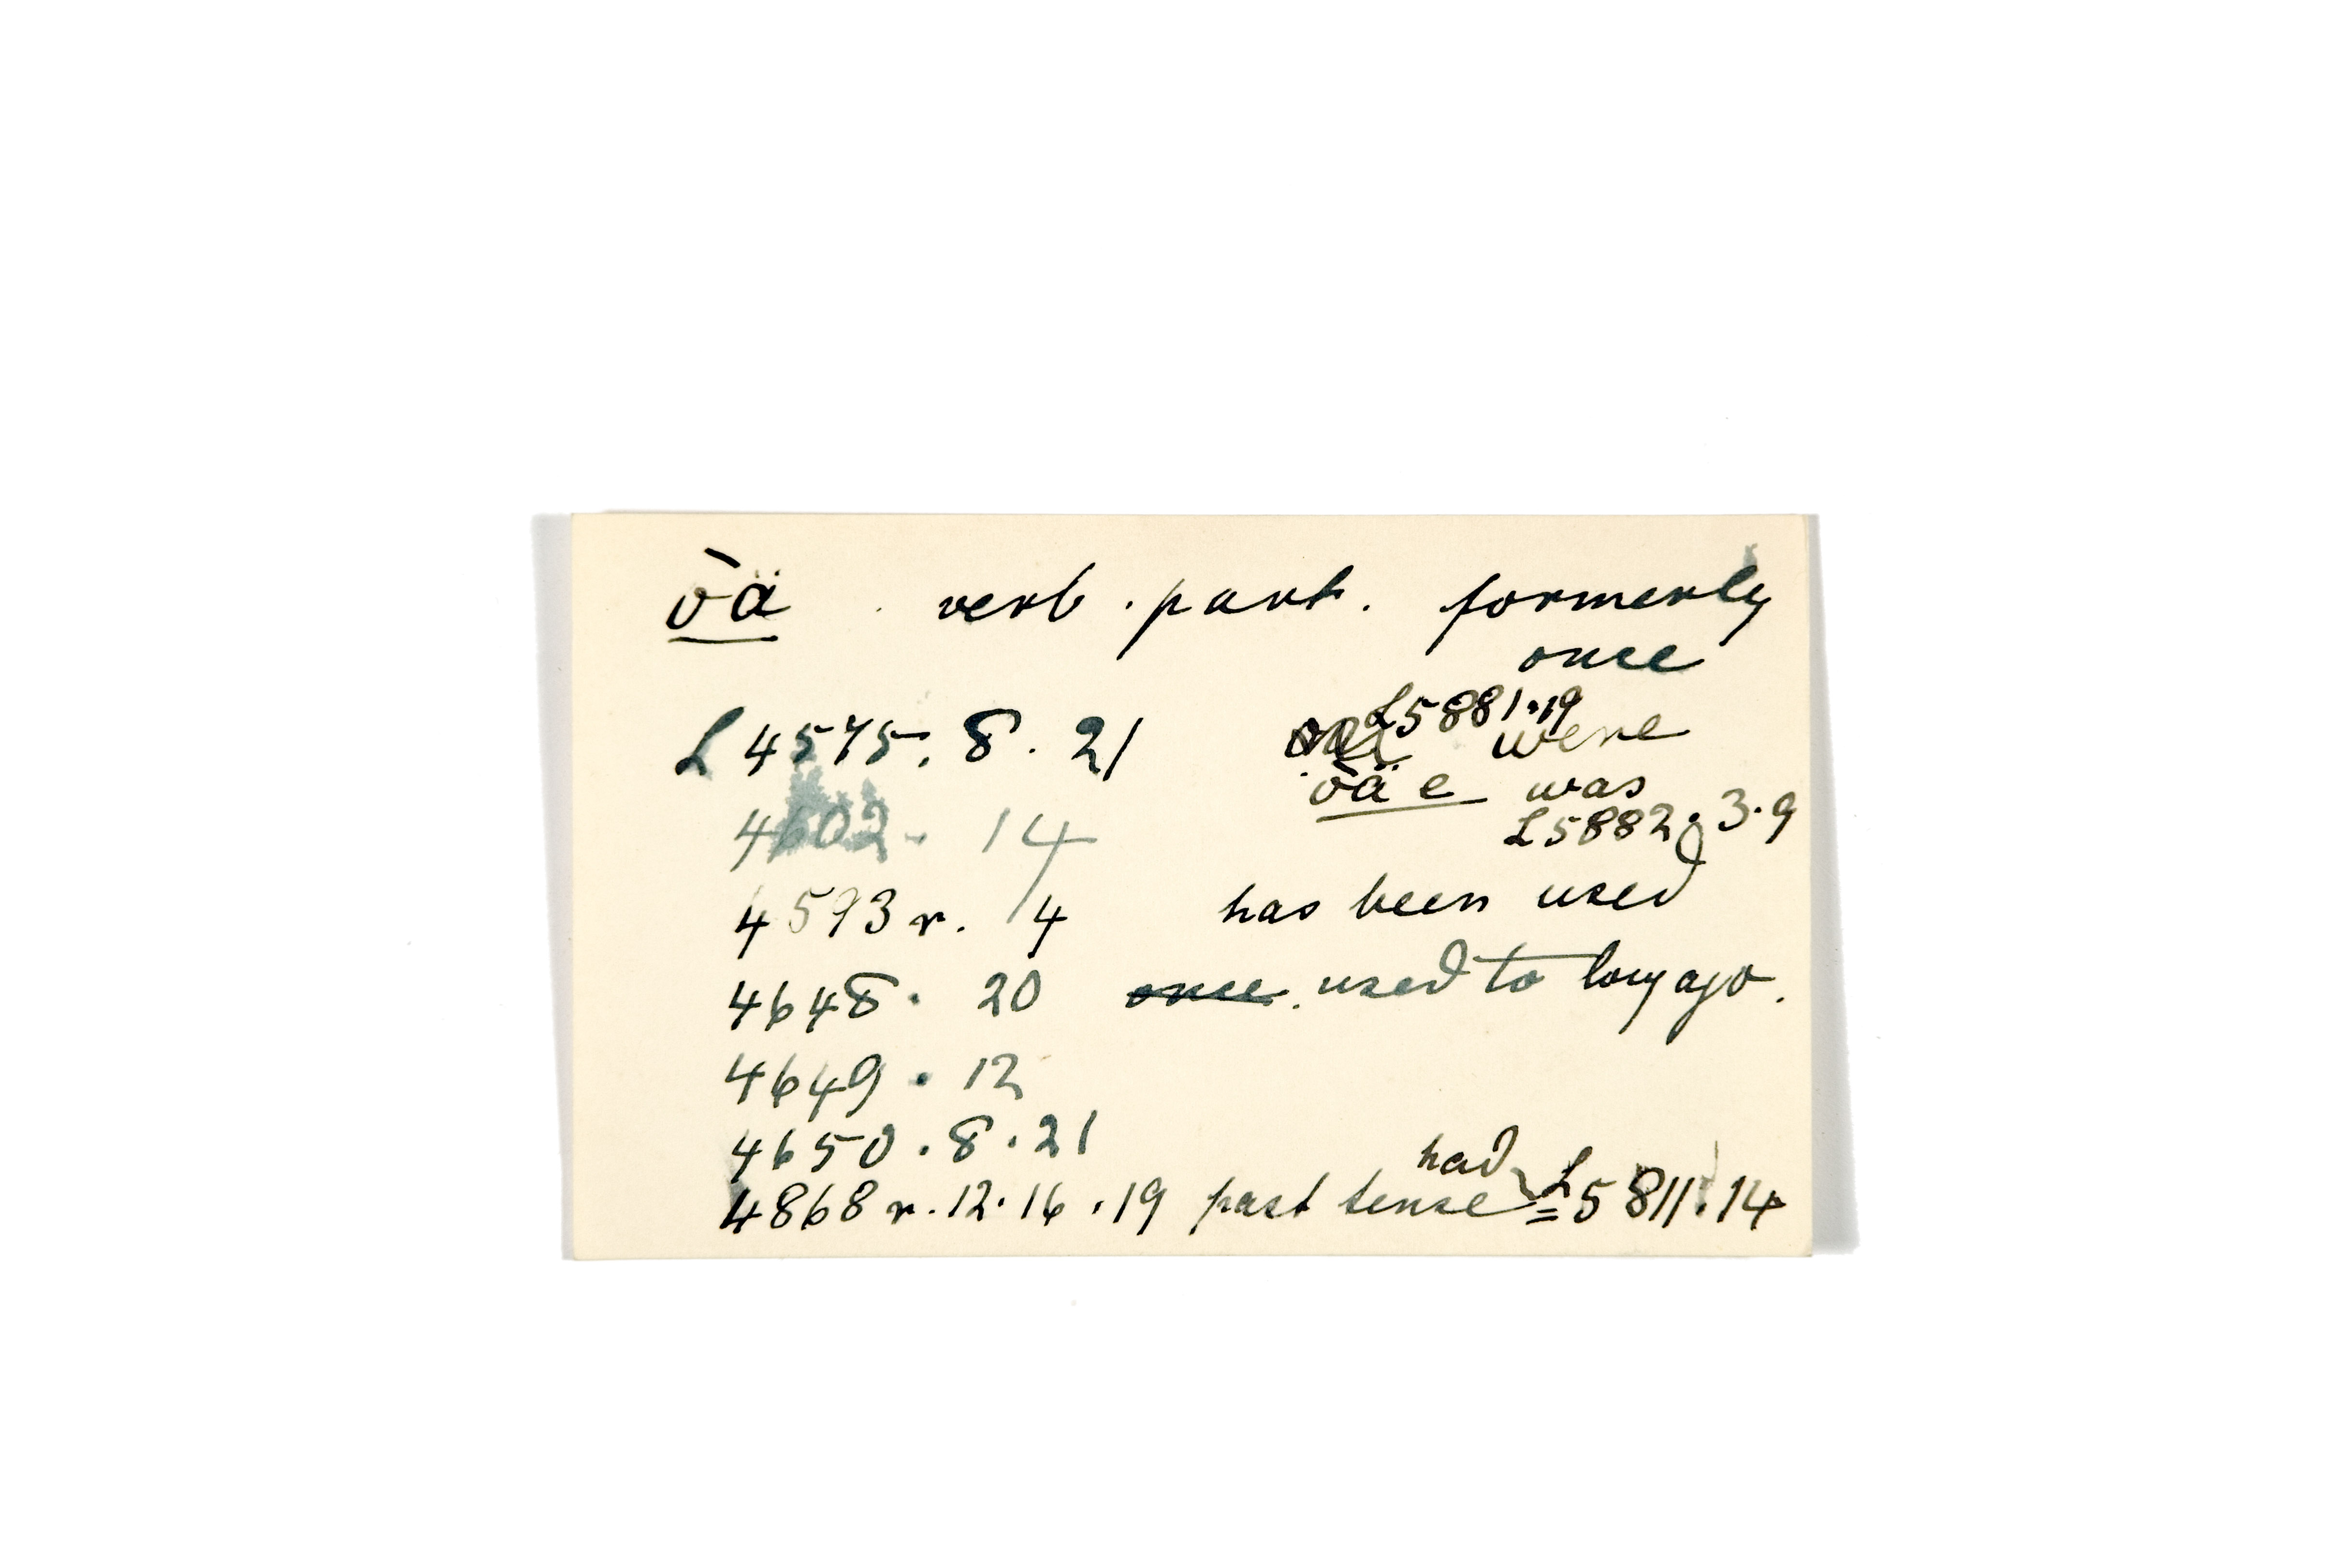 ōä . verb. part. formerly
once
L5881.19
L 4575. 8. 21 were
ōä e was
4602. 14 L5882. 3. 9
4593 r. 14 has been used
4648. 20 once. used to long ago.
4649. 12
4650. 8. 21
had
4868 r. 12. 16. 19 past tense = L5811. 14